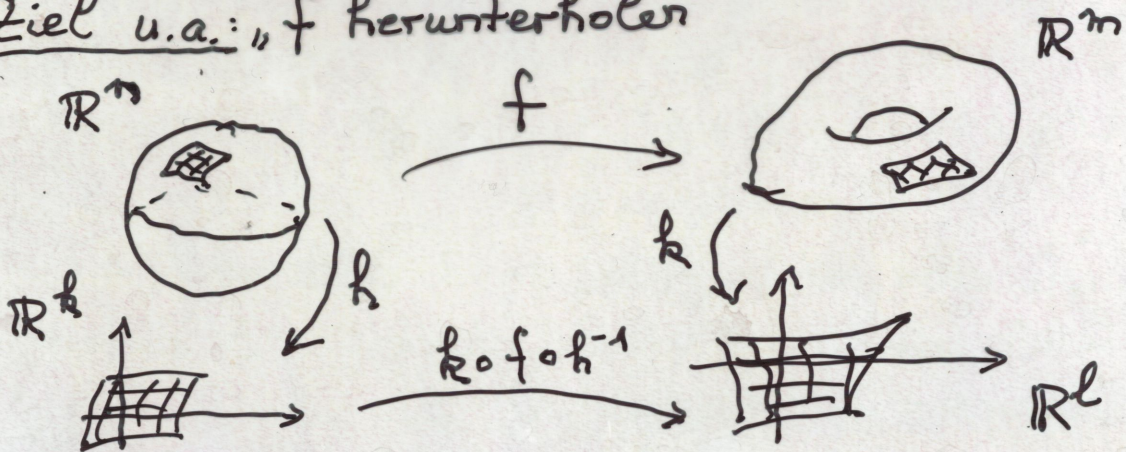 Ziel u.a.: „f herunterholen
ℝⁿ
f
ℝᵐ
h
k
ℝᵏ
k∘f∘h⁻¹
ℝˡ